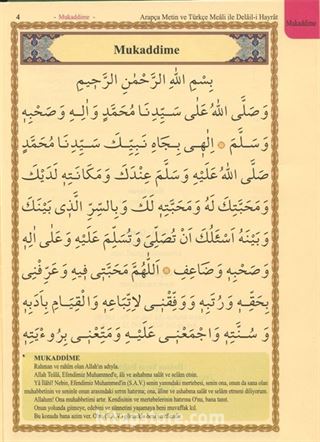 4 - Mukaddime - Arapça Metin ve Türkçe Meâli ile Delâil-i Hayrât
Mukaddime
Mukaddime
بِسْمِ اللهِ الرَّحْمٰنِ الرَّحِيمِ
وَصَلَّى اللهُ عَلٰى سَيِّدِنَا مُحَمَّدٍ وَاٰلِهِ وَصَحْبِهِ
وَسَلَّمَ ۞ اِلٰهِى بِجَاهِ نَبِيِّكَ سَيِّدِنَا مُحَمَّدٍ
صَلَّى اللهُ عَلَيْهِ وَسَلَّمَ عِنْدَكَ وَمَكَانَتِهِ لَدَيْكَ
وَمَحَبَّتِكَ لَهُ وَمَحَبَّتِهِ لَكَ وَبِالسِّرِّ الَّذِى بَيْنَكَ
وَبَيْنَهُ اَسْئَلُكَ اَنْ تُصَلِّىَ وَتُسَلِّمَ عَلَيْهِ وَعَلٰى اٰلِهِ
وَصَحْبِهِ وَضَاعِفِ ۞ اَللّٰهُمَّ مَحَبَّتِى فِيهِ وَعَرِّفْنِى
بِحَقِّهِ وَرُتَبِهِ وَوَفِّقْنِى لِاتِّبَاعِهِ وَالْقِيَامِ بِاَدَبِهِ
وَسُنَّتِهِ وَاجْمَعْنِى عَلَيْهِ وَمَتِّعْنِى بِرُوءْيَتِهِ
MUKADDİME
Rahman ve rahim olan Allah'ın adıyla.
Allah Teâlâ, Efendimiz Muhammed'e, âli ve ashabına salât ve selâm etsin.
Yâ İlâhi! Nebin, Efendimiz Muhammed'in (S.A.V.) senin yanındaki mertebesi, senin ona, onun da sana olan
muhabbetinin ve seninle onun arasındaki sırrın hatırına; ona, âline ve ashabına salât ve selâm etmeni diliyorum.
Allahım! Ona muhabbetimi artır. Kendisinin ve mertebelerinin hatırına O'nu, bana tanıt.
Onun yolunda gitmeye, edebini ve sünnetini yaşamaya beni muvaffak kıl.
Bu konuda bana azim ver.